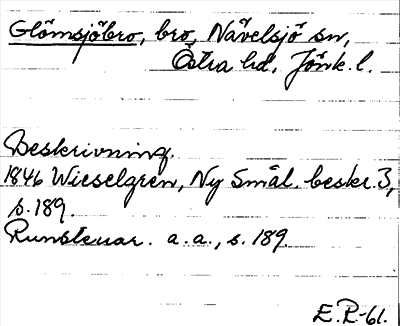 Glömsjöbro, bro, Nävelsjö sn,
Östra hd, Jönk. l.
Beskrivning.
1846 Wieselgren, Ny Smål. beskr. 3,
s. 189.
Runstenar. a. a., s. 189.
E.R-61.